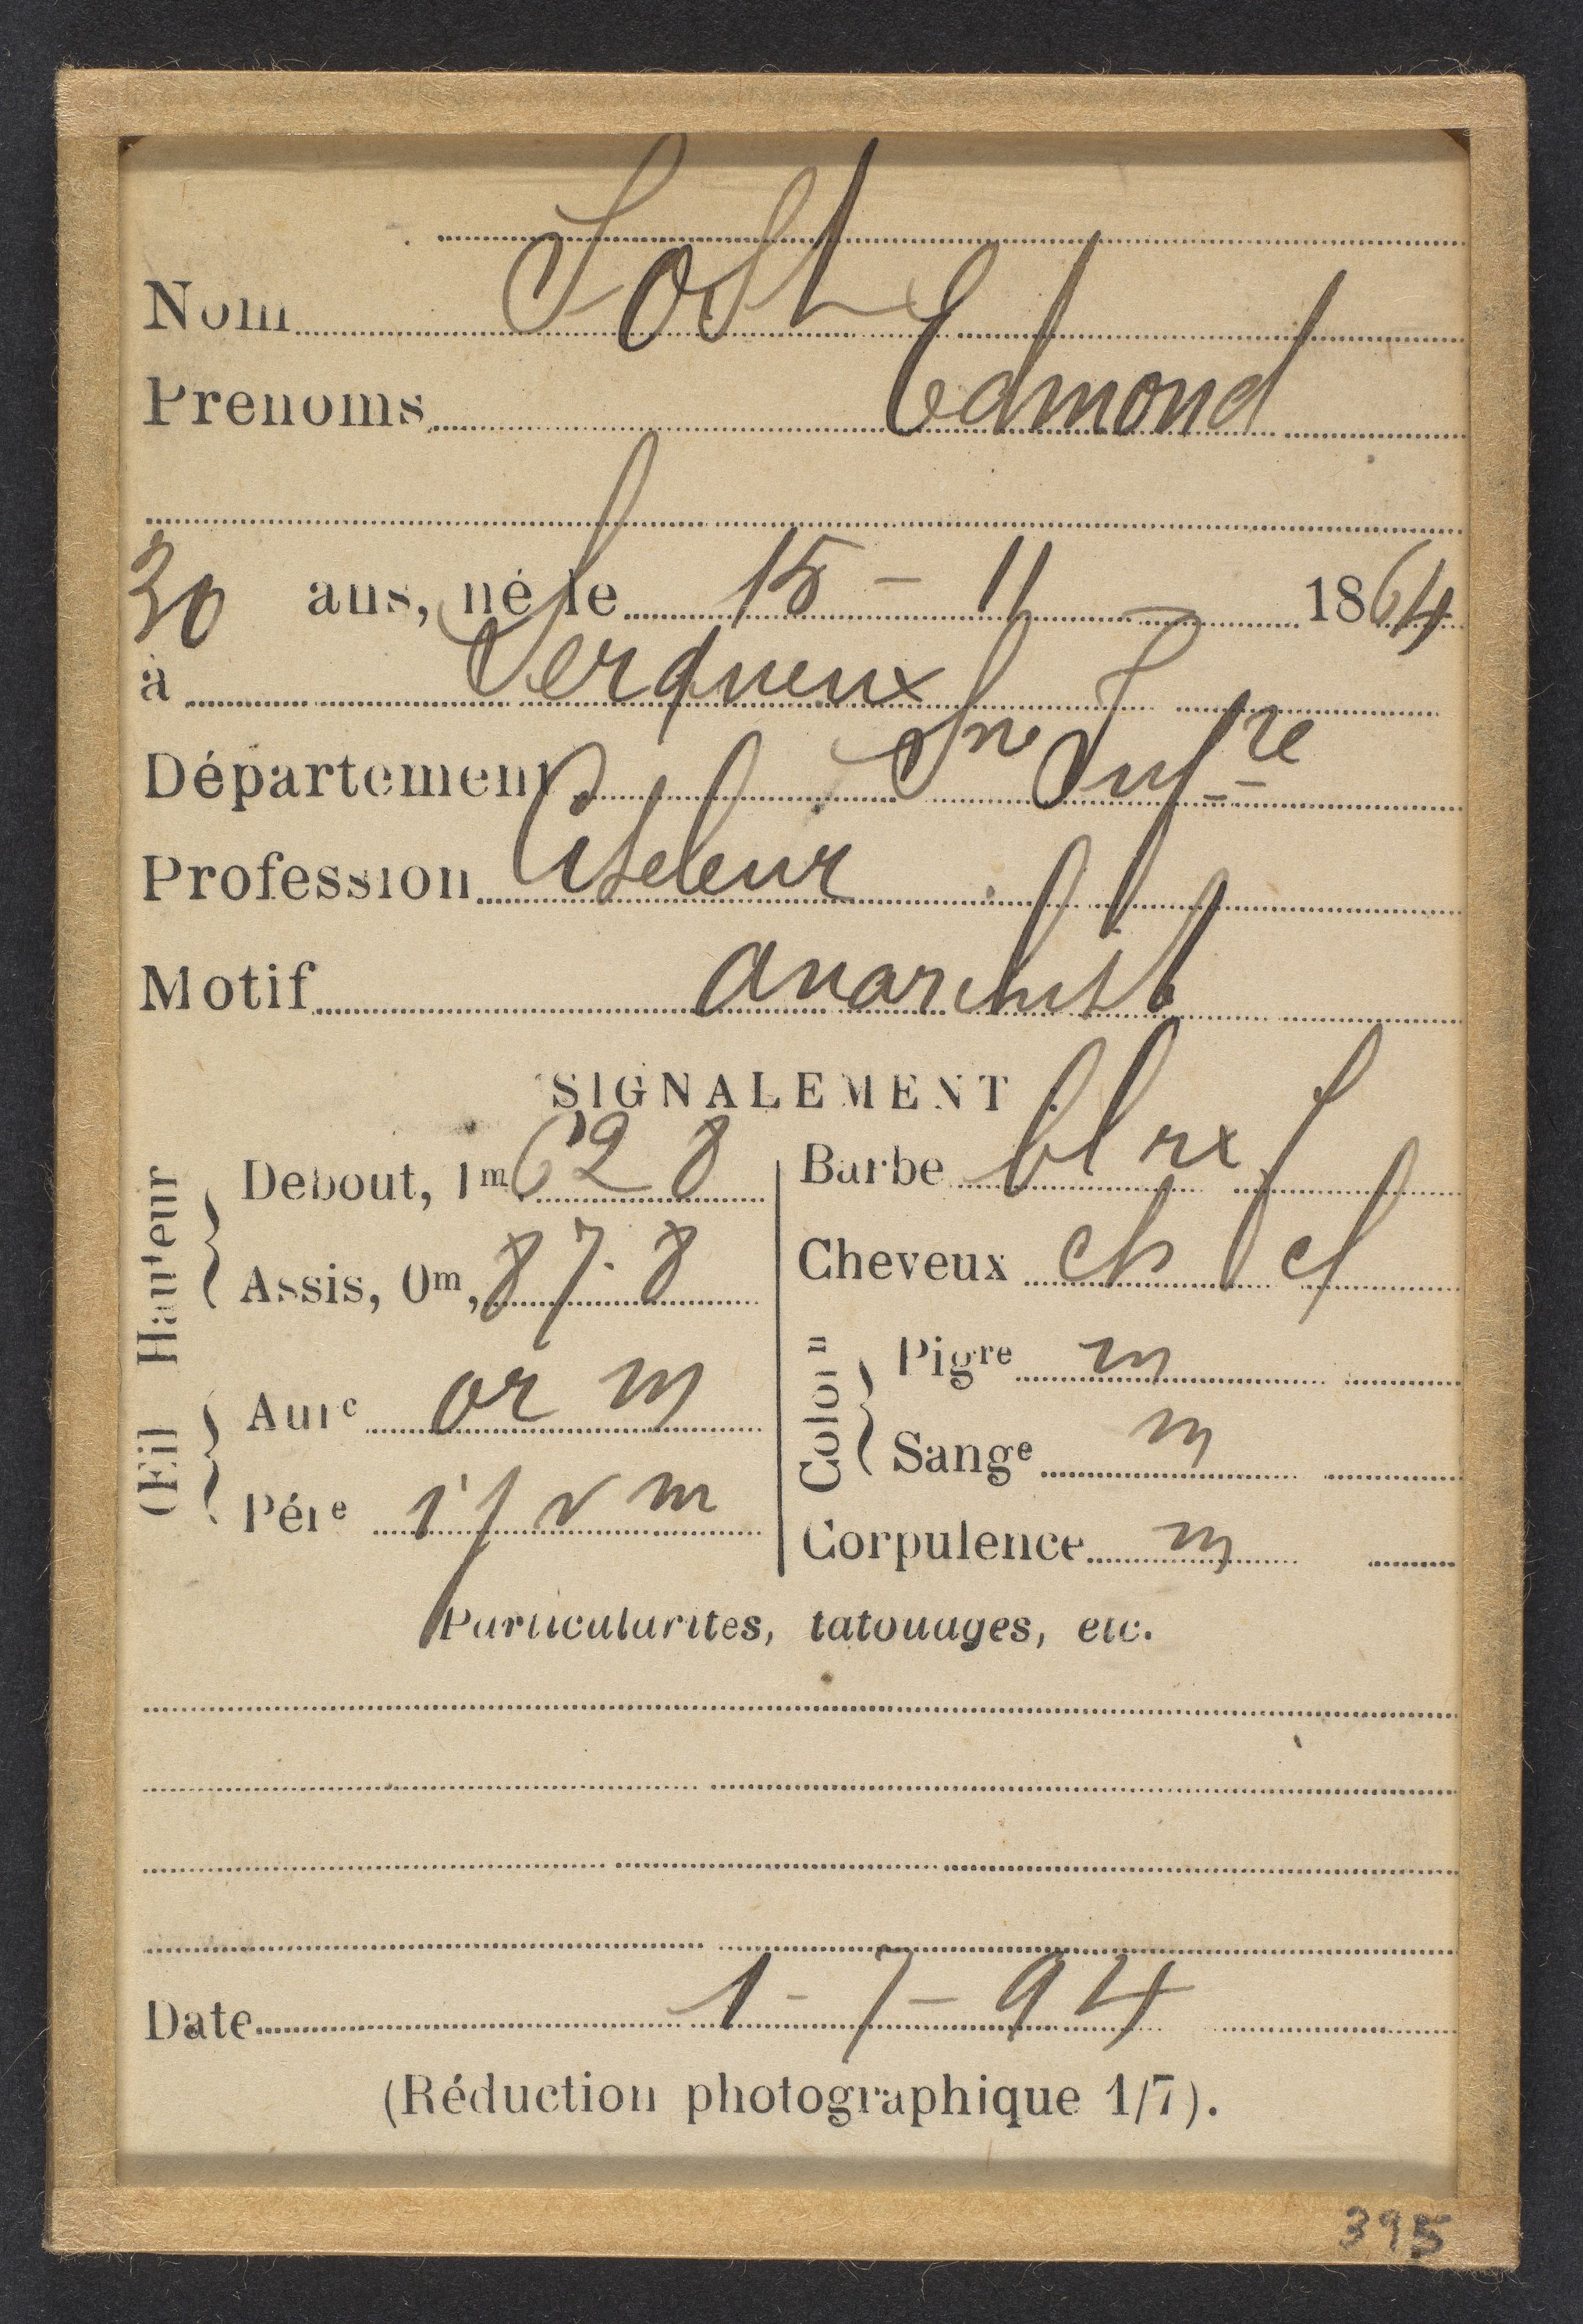 Nom Sost
Prénoms Edmond
30 ans, né le 15 - 11 1864
à Serqueux
Département Sne Infre
Profession Ciseleur
Motif anarchiste
SIGNALEMENT
Hauteur
Debout, 1m 62 8
Assis, 0m, 87. 8
Œil
Aure or m
Pére i f v m
Barbe bl rx f
Cheveux ch cl
Color n
Pigre m
Sange m
Corpulence m
Particularités, tatouages, etc.
Date 1-7-94
(Réduction photographique 1/7).
395